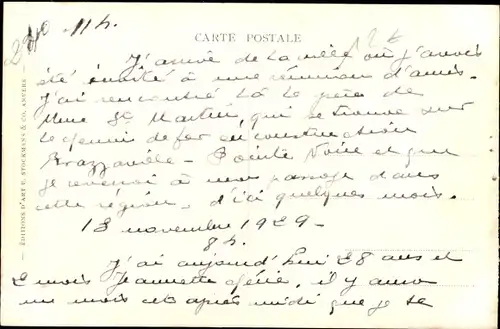 11 h.
CARTE POSTALE
J'arrive de la ville où j'avais
été invité à une réunion d'amis.
J'ai rencontré là le père de
Mme St Martin, qui se trouve sur
le chemin de fer en construction
Brazzaville - Pointe Noire et que
je reverrai à mon passage dans
cette région, d'ici quelques mois.
13 novembre 1929 -
8 h.
J'ai aujourd'hui 28 ans et
2 mois Jeannette chérie, il y aura
un mois cet après midi que je se
— ÉDITIONS D'ART E. STOCKMANS & CO., ANVERS